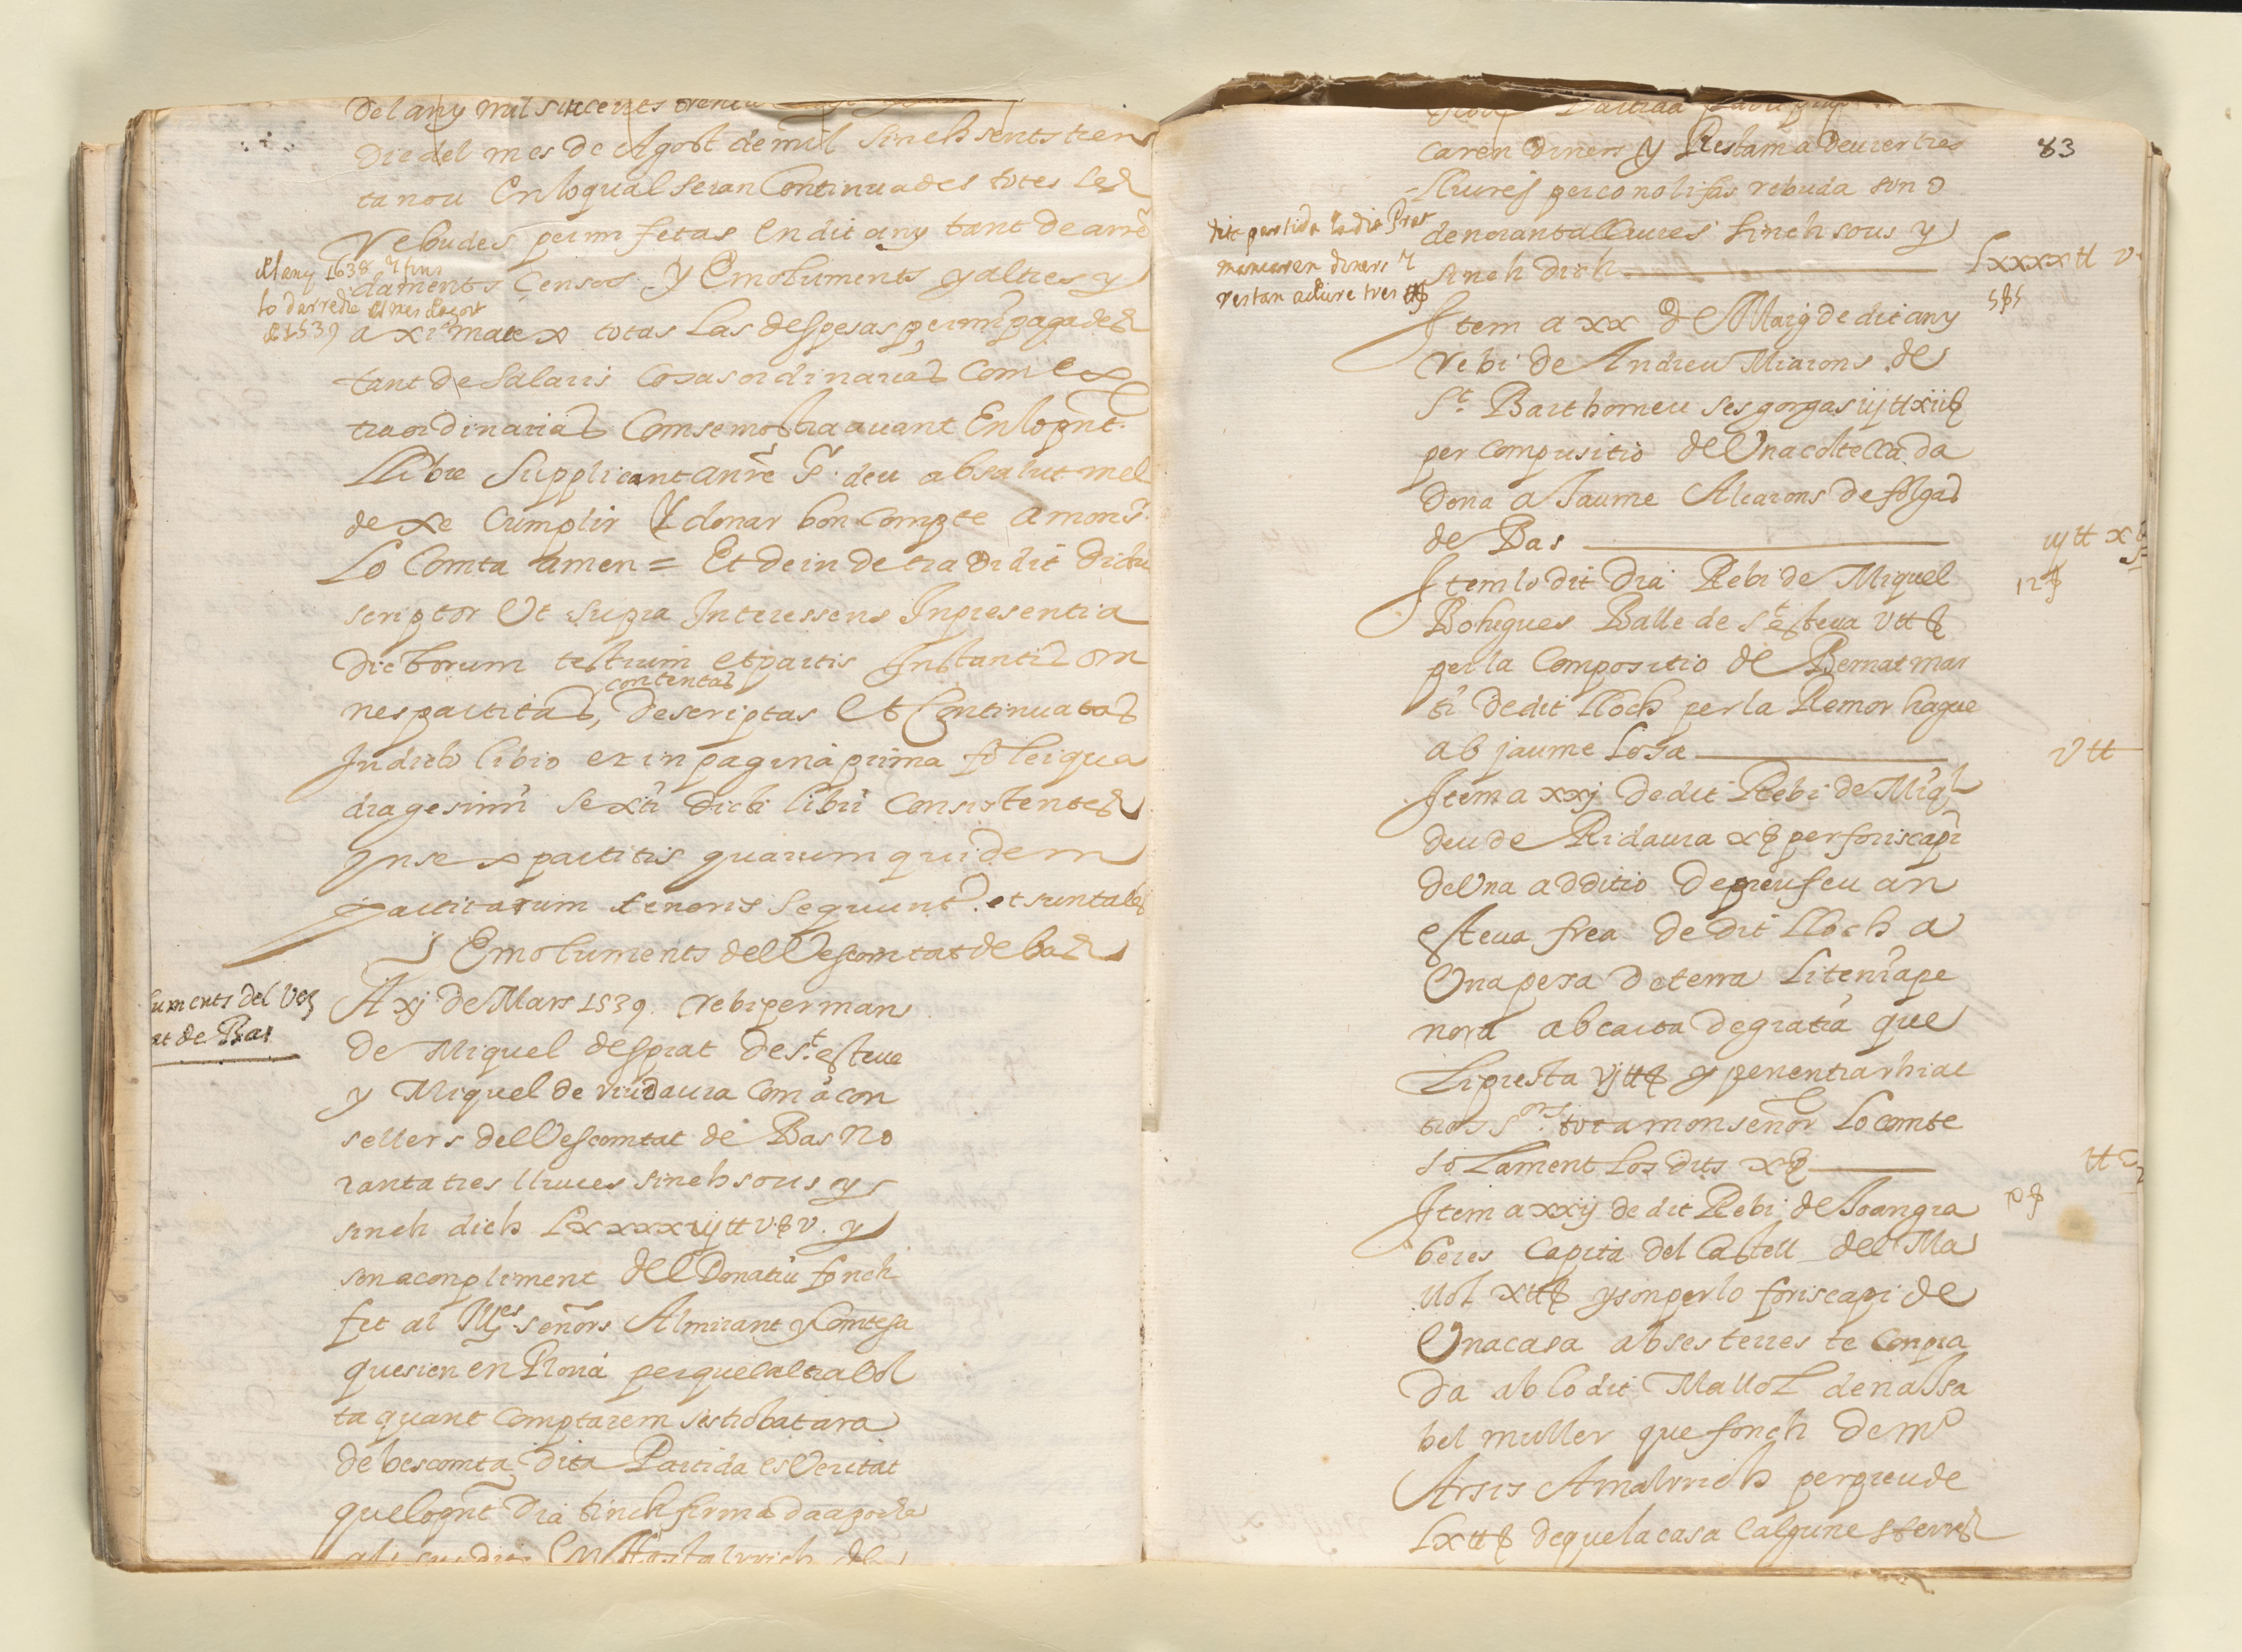 Del any mil sinccentes trenta
Die del mes de Agost de mil sinchsents tren
ta nou En loqual seran Continuades totes les
rebudes per mi fetas en dit any tant de arrē
daments Censos y Emoluments y altres y
a xi matex totas las despesas per mi pagades
tant de salaris Cosas ordinarias Com ex
traordinarias Com se mostra auant En lo pnt
Llibre Supplicant a nr̃e Sr deu absolut mel
dexe cumplir y donar bon compte a mon sr
Lo Comta amen = Et deinde tradidit dictu
scriptor Ut supra Interessens In presentia
dictorum testium et partis Instantis om
contentas
nes partitas, descriptas et Continuatas
In dicto libro et in pagina prima folei qua
dragesimi sexti dicti libri Consistentes
In sex partitis quarum quidem
partitarum tenoris sequunt et sunt tales
Emoluments del Vescomtat de bas
A xj de Mars 1539. rebi per man
de Miquel desprat de St esteue
y Miquel de riudaura Com a con
sellers del Vescomtat de Bas no
ranta tres lliures sinch sous y
sinch dies Lxxxxiij tt v ß v. y
son a compliment del Donatiu fonch
fet al Illes señors Almirant y Comtesa
que sien en Roma perque laltra vol
ta quant comptarem ses trobat ara
de bescomta dita Partida es Veritat
que lo pñt dia tinch firmada apocha
als sus dits En Hostalrrich de
del any 1638 y fins
lo darrer die del mes de Agost
de 1539
uments del Ves
at de Bas
83
Partida
caren diners y Restam a deurer tres
lliures perco no li fas rebuda sino
de noranta lliures sinch sous y
sinch dich Lxxxx tt v
5 ß 5
dit partida lo die Pres
mancaren diners y
restan a deure tres tt
Item a xx de Maig de dit any
rebi de Andreu Miarons de
St. Barthomeu ses gorgas iij tt xii ß
per compositio de Una coltellada
dona a Jaume Alcarons de folgas
de Bas iij tt x
12 ß
Item lo dit dia Rebi de Miquel
Bohigues Balle de St esteua v tt ß
per la Compositio de Bernat mar
ti de dit lloch per la Remor hague
ab jaume Losa v tt
Item a xxj de dit Rebi de Miql
deu de Ridaura x ß per foriscapi
de Una additio de preu feu an
esteua frea de dit lloch a
Una pesa de terra li tenia pe
nora ab carta de gratia que
li presta vj tt ß y penentia rhiac
a monseñor Lo comte
solament los dits x ß tt
10 ß
Item a xxij de dit Rebi de Joan gra
beres Capita del Castell del Ma
llol x tt ß y son per lo foriscapi de
Una casa ab ses terres te compra
da ab lo dit Mallol de na Isa
bel muller que fonch de mo
Arsis Amalrrich per preu de
Lx tt ß de que la casa e algune s terres